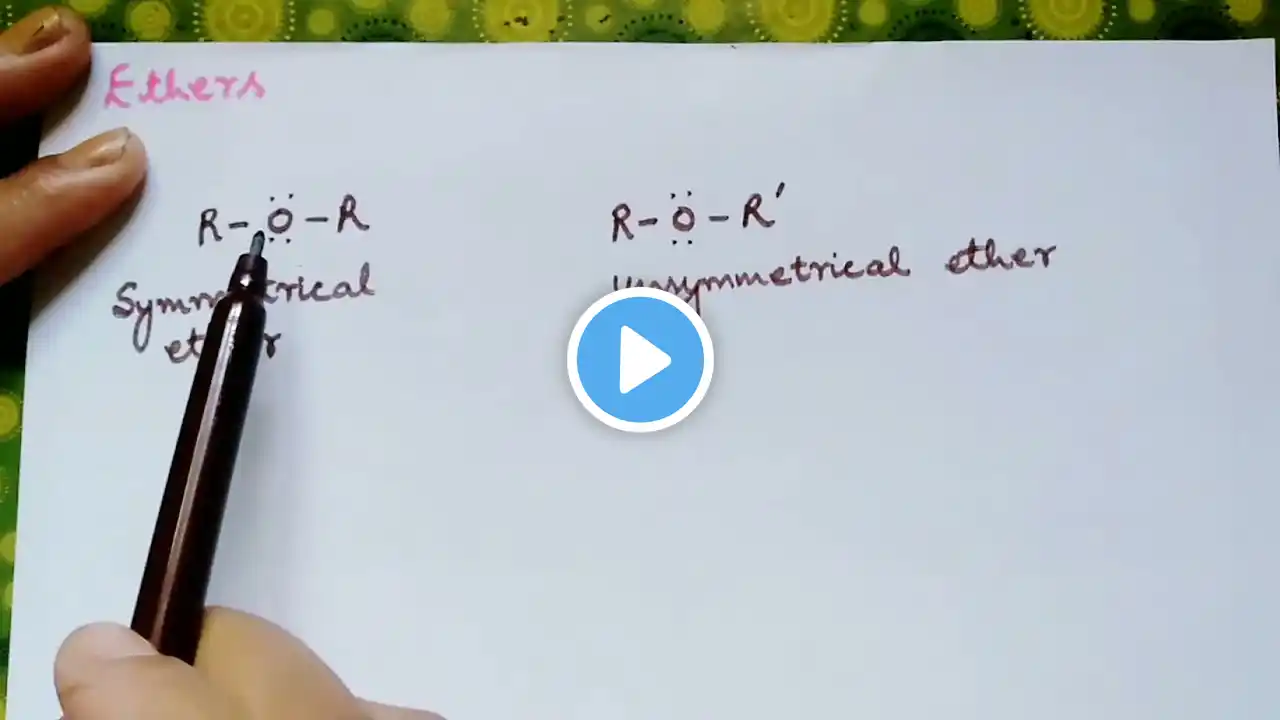 Ethers
R-Ö-R
R-Ö-R'
Symmetrical
ether
unsymmetrical ether